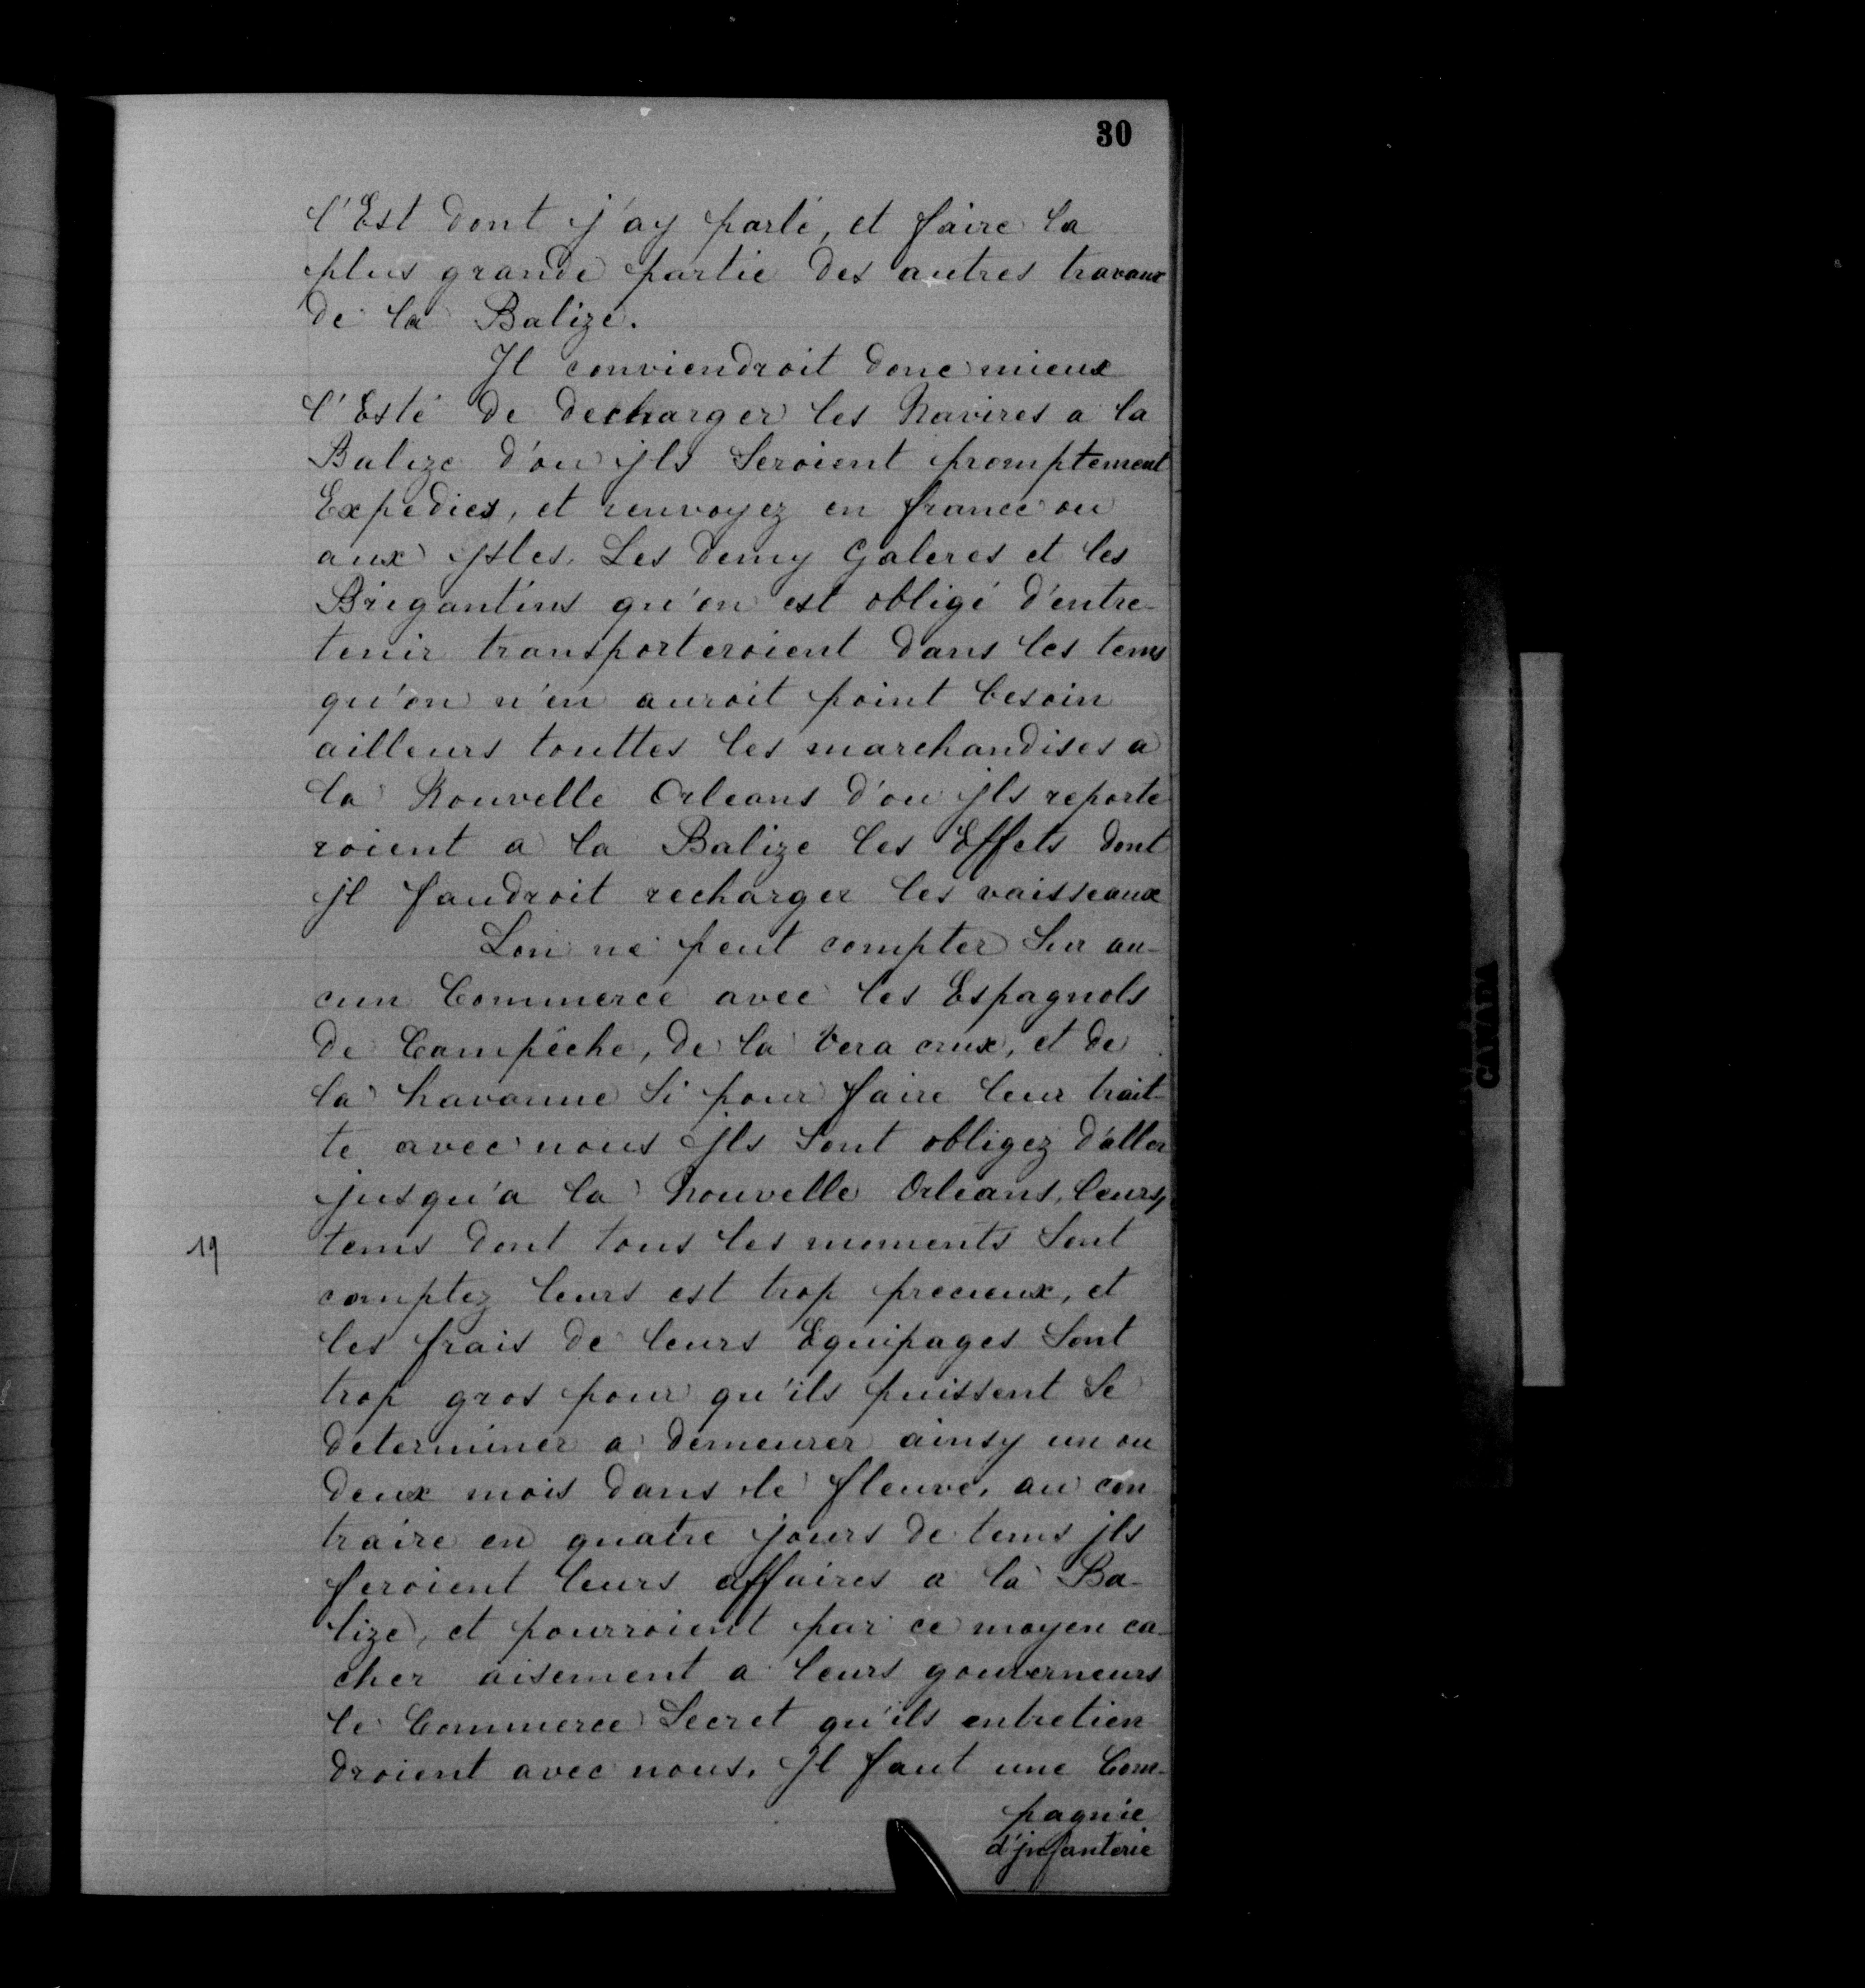 30
l'Est dont j'ay parlé, et faire la
plus grande partie des autres travaux
de la Balize.
Il conviendroit donc mieux
l'Esté de decharger les Navires a la
Balize d'ou jls seroient promptement
Expedies, et renvoyez en france ou
aux jsles. Les demy Galeres et les
Brigantins qu'on est obligé d'entre-
tenir transporteroient dans les tems
qu'on n'en auroit point besoin
ailleurs touttes les marchandises a
la Nouvelle Orleans d'ou jls reporte
roient a la Balize les Effets dont
jl faudroit recharger les vaisseaux
Lon ne peut compter sur au-
cun Commerce avec les Espagnols
de Campêche, de la Vera crux, et de
la havanne si pour faire leur trait-
te avec nous jls sont obligez d'aller
jusqu'a la Nouvelle Orleans, leurs
19
tems dont tous les moments sont
comptez leurs est trop precieux, et
les frais de leurs Equipages sont
trop gros pour qu'ils puissent se
determiner a demeurer ainsy un ou
deux mois dans le fleuve, au con
traire en quatre jours de tems jls
feroient leurs affaires a la Ba-
lize, et pourroient par ce moyen ca-
cher aisement a leurs gouverneurs
le Commerce Secret qu'ils entretien
droient avec nous. Jl faut une Com-
pagnie
d'jnfanterie
CANADA